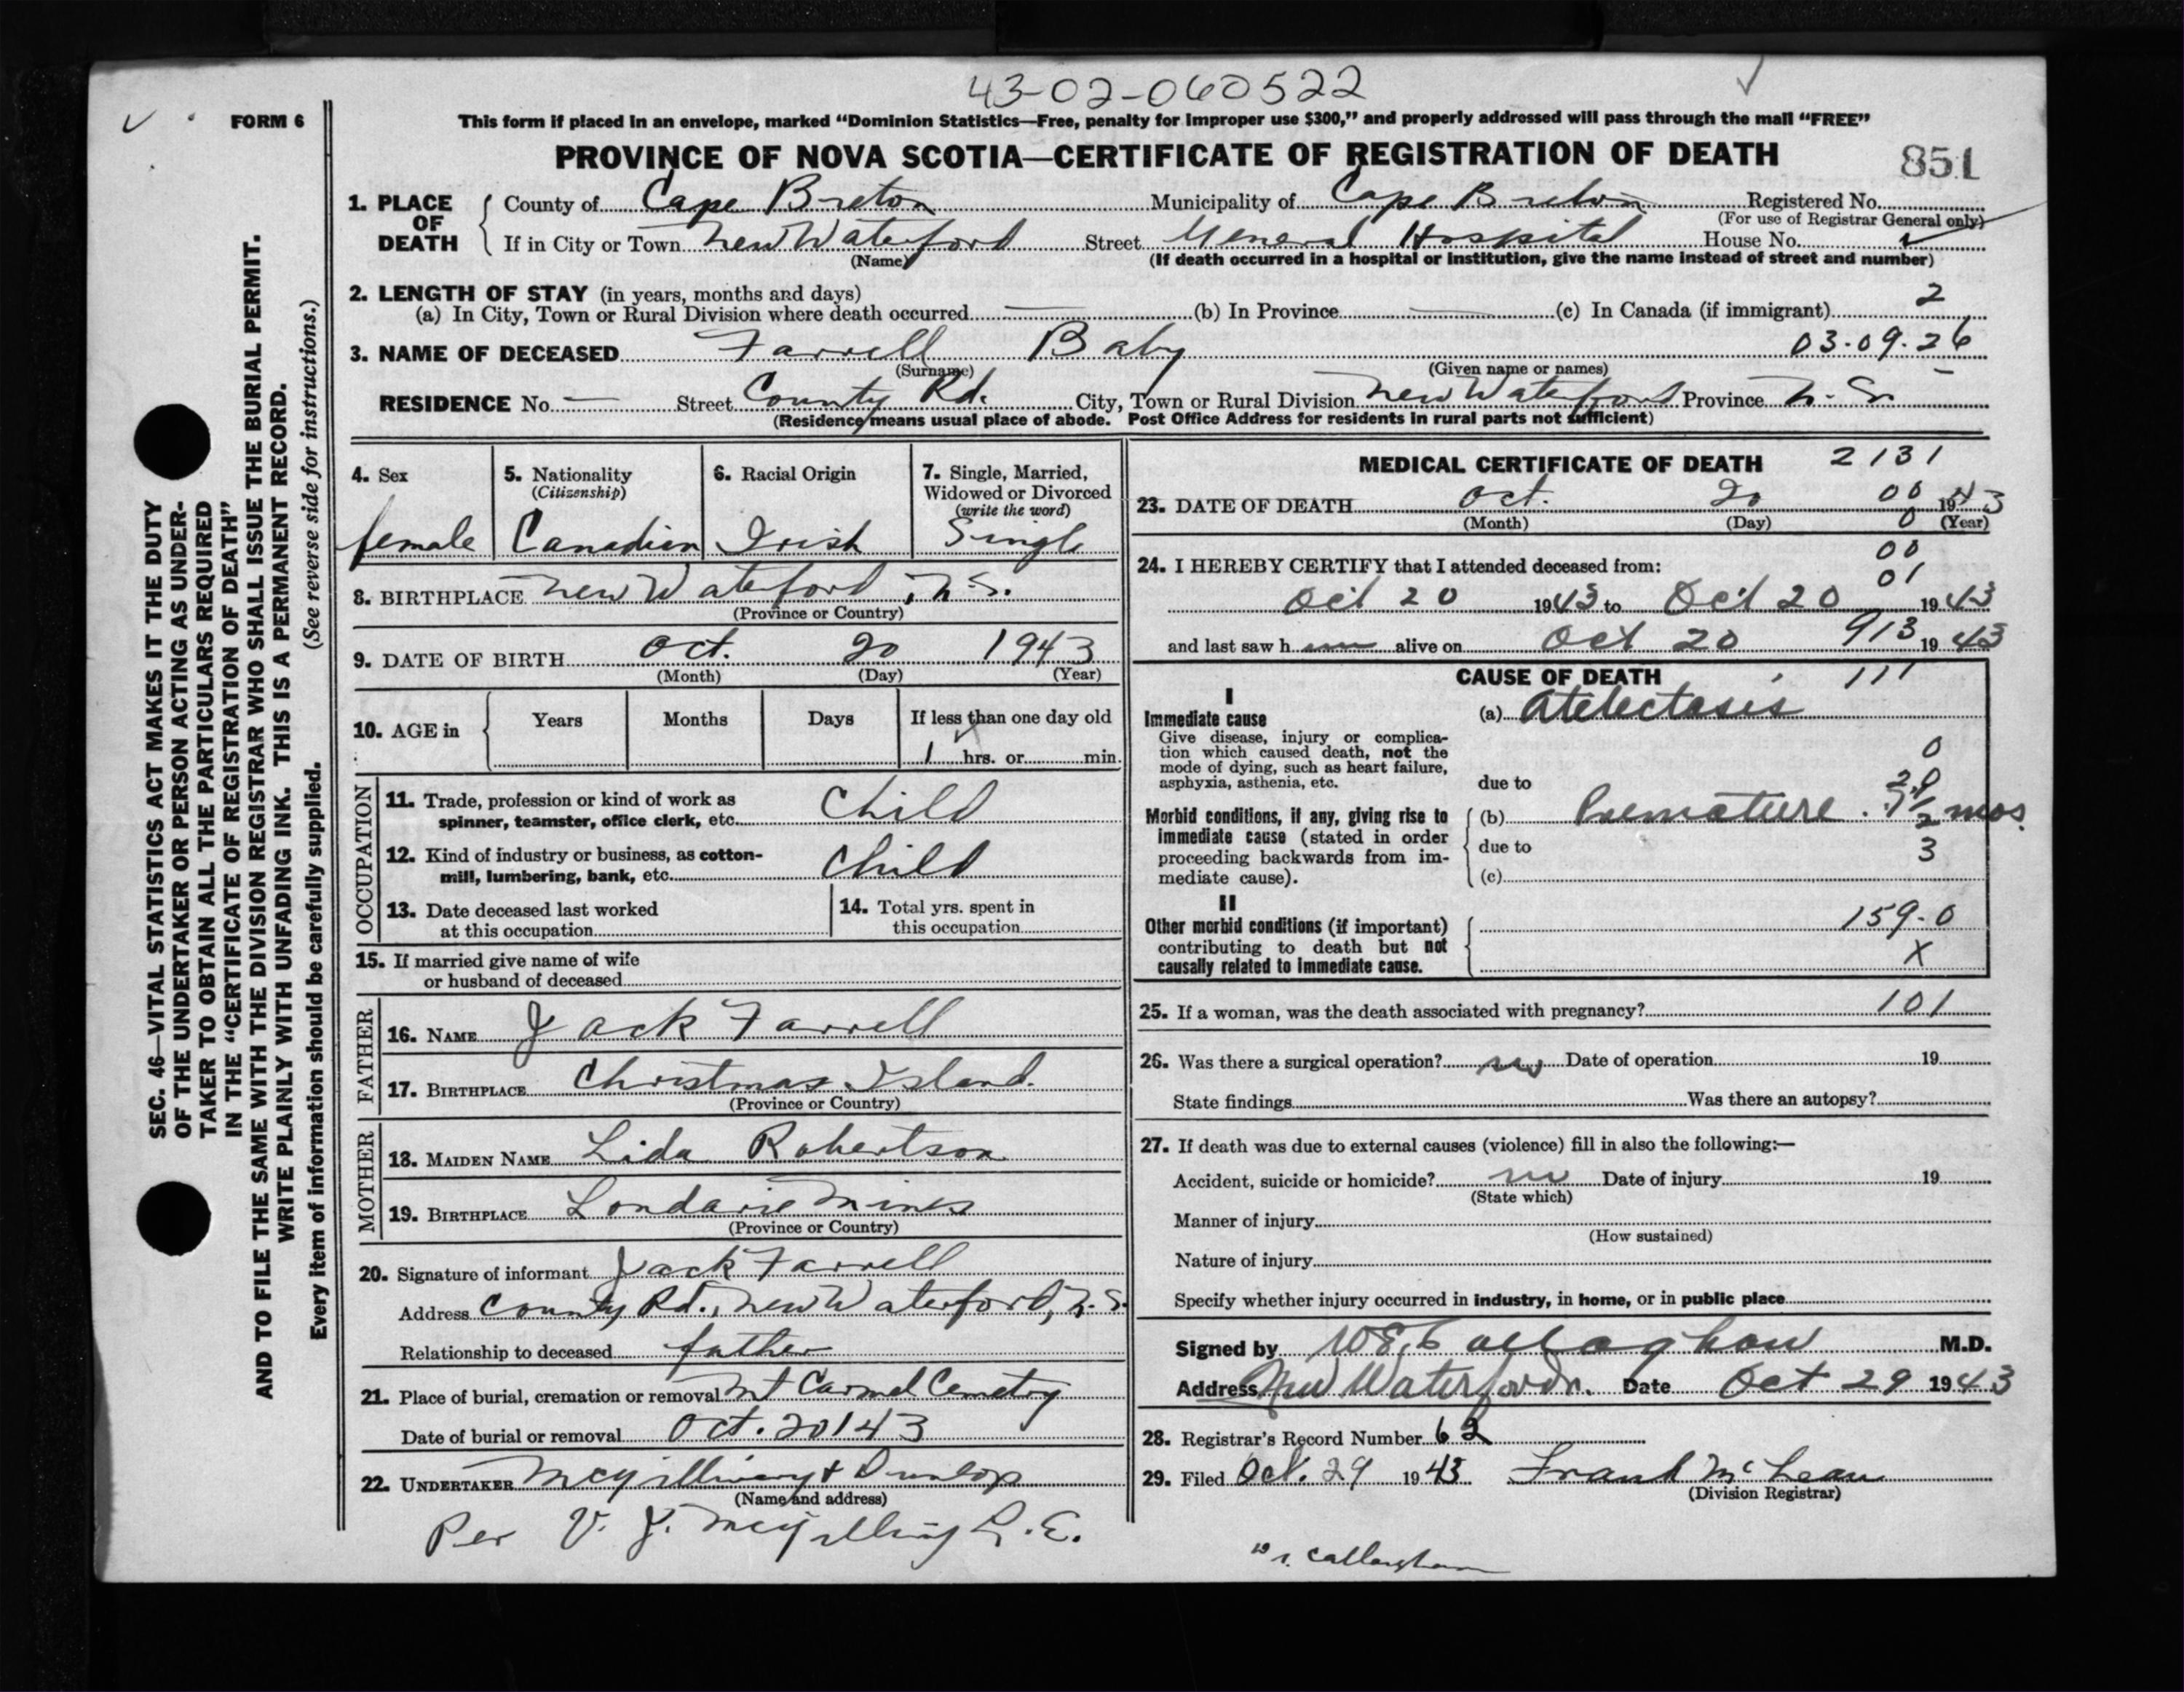 43-02-060522
FORM 6
This form if placed in an envelope, marked “Dominion Statistics—Free, penalty for improper use $300,” and properly addressed will pass through the mail “FREE”
PROVINCE OF NOVA SCOTIA—CERTIFICATE OF REGISTRATION OF DEATH 851
SEC. 46—VITAL STATISTICS ACT MAKES IT THE DUTY
OF THE UNDERTAKER OR PERSON ACTING AS UNDER-
TAKER TO OBTAIN ALL THE PARTICULARS REQUIRED
IN THE “CERTIFICATE OF REGISTRATION OF DEATH”
AND TO FILE THE SAME WITH THE DIVISION REGISTRAR WHO SHALL ISSUE THE BURIAL PERMIT.
WRITE PLAINLY WITH UNFADING INK. THIS IS A PERMANENT RECORD.
Every item of information should be carefully supplied. (See reverse side for instructions.)
1. PLACE OF DEATH
County of Cape Breton Municipality of Cape Breton Registered No.
(For use of Registrar General only)
If in City or Town New Waterford Street General Hospital House No.
(Name) (If death occurred in a hospital or institution, give the name instead of street and number)
2. LENGTH OF STAY (in years, months and days) 2
(a) In City, Town or Rural Division where death occurred — (b) In Province — (c) In Canada (if immigrant)
3. NAME OF DECEASED Farrell Baby 03-09-26
(Surname) (Given name or names)
RESIDENCE No. — Street County Rd. City, Town or Rural Division New Waterford Province N.S.
(Residence means usual place of abode. Post Office Address for residents in rural parts not sufficient)
4. Sex female
5. Nationality (Citizenship) Canadian
6. Racial Origin Irish
7. Single, Married, Widowed or Divorced (write the word) Single
8. BIRTHPLACE New Waterford, N.S.
(Province or Country)
9. DATE OF BIRTH Oct. 20 1943
(Month) (Day) (Year)
10. AGE in Years Months Days If less than one day old
1 hrs. or min.
OCCUPATION
11. Trade, profession or kind of work as
spinner, teamster, office clerk, etc. Child
12. Kind of industry or business, as cotton-
mill, lumbering, bank, etc. Child
13. Date deceased last worked
at this occupation
14. Total yrs. spent in
this occupation
15. If married give name of wife
or husband of deceased
FATHER
16. NAME Jack Farrell
17. BIRTHPLACE Christmas Island.
(Province or Country)
MOTHER
18. MAIDEN NAME Lida Robertson
19. BIRTHPLACE Mines
(Province or Country)
20. Signature of informant Jack Farrell
Address County Rd., New Waterford, N.S.
Relationship to deceased father
21. Place of burial, cremation or removal Mt Carmel Cemetry
Date of burial or removal Oct. 20 1943
22. UNDERTAKER McGillivary & Dunlop
(Name and address)
Per V. J.
MEDICAL CERTIFICATE OF DEATH 2131
23. DATE OF DEATH Oct. 20 00 1943
(Month) (Day) 0 (Year)
00
24. I HEREBY CERTIFY that I attended deceased from: 01
Oct 20 1943 to Oct 20 1943
and last saw h alive on Oct 20 913 1943
CAUSE OF DEATH 111
I
Immediate cause (a) Atelectasis
Give disease, injury or complica-
tion which caused death, not the 0
mode of dying, such as heart failure,
asphyxia, asthenia, etc. due to 20
Morbid conditions, if any, giving rise to (b) Premature. 7½ mos.
immediate cause (stated in order
proceeding backwards from im- due to 3
mediate cause). (c)
II
Other morbid conditions (if important) 159-0
contributing to death but not
causally related to immediate cause. X
25. If a woman, was the death associated with pregnancy? 101
26. Was there a surgical operation? no Date of operation 19
State findings Was there an autopsy?
27. If death was due to external causes (violence) fill in also the following:—
Accident, suicide or homicide? no Date of injury 19
(State which)
Manner of injury
(How sustained)
Nature of injury
Specify whether injury occurred in industry, in home, or in public place
Signed by W E Callaghan M.D.
Address New Waterford. Date Oct 29 1943
28. Registrar's Record Number 62
29. Filed Oct. 29 1943 Frank McLean
(Division Registrar)
Callaghan